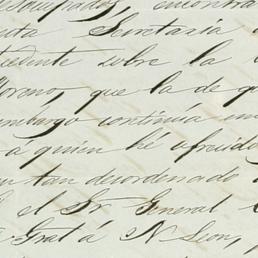 desocupados, encontra
nta Secretaría
cedente sobre la
Moreno, que la de g
embargo continúa en
á quien hé ofrecido
en tan desordenado
el Sr General
Grat á N Leon,